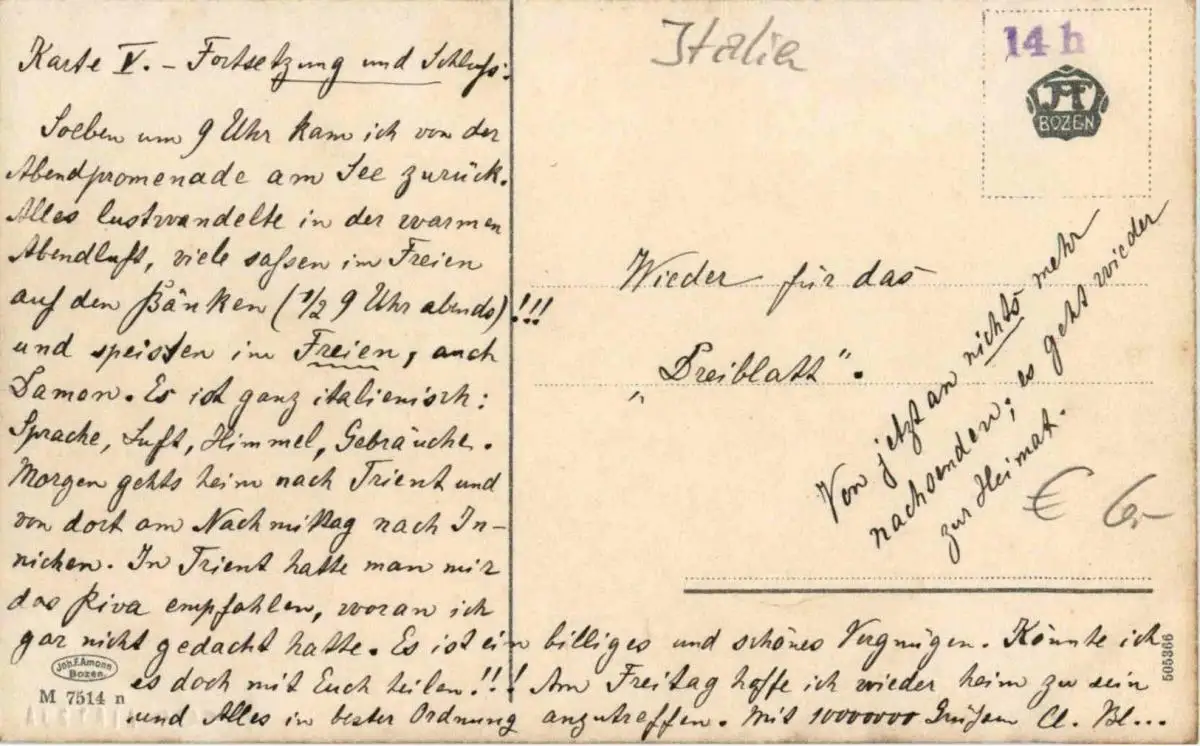 Karte V. – Fortsetzung und Schluß:
Soeben um 9 Uhr kam ich von der
Abendpromenade am See zurück.
Alles lustwandelte in der warmen
Abendluft, viele saßen im Freien
auf den Bänken (1/2 9 Uhr abends)!!!
und speisten im Freien, auch
Damen. Es ist ganz italienisch:
Sprache, Luft, Himmel, Gebräuche.
Morgen gehts heim nach Trient und
von dort am Nachmittag nach In-
nichen. In Trient hatte man mir
das Riva empfohlen, woran ich
gar nicht gedacht hatte. Es ist ein billiges und schönes Vergnügen. Könnte ich
es doch mit Euch teilen!!! Am Freitag hoffe ich wieder heim zu sein
und Alles in bester Ordnung anzutreffen. Mit 10000000 Grüßen Cl. Bl...
Joh.F.Amonn
Bozen.
M 7514 n
Italien
14 h
JFA
BOZEN
Wieder für das
„Dreiblatt".
Von jetzt an nichts mehr
nachsenden; es geht wieder
zur Heimat.
€ 6,-
505366